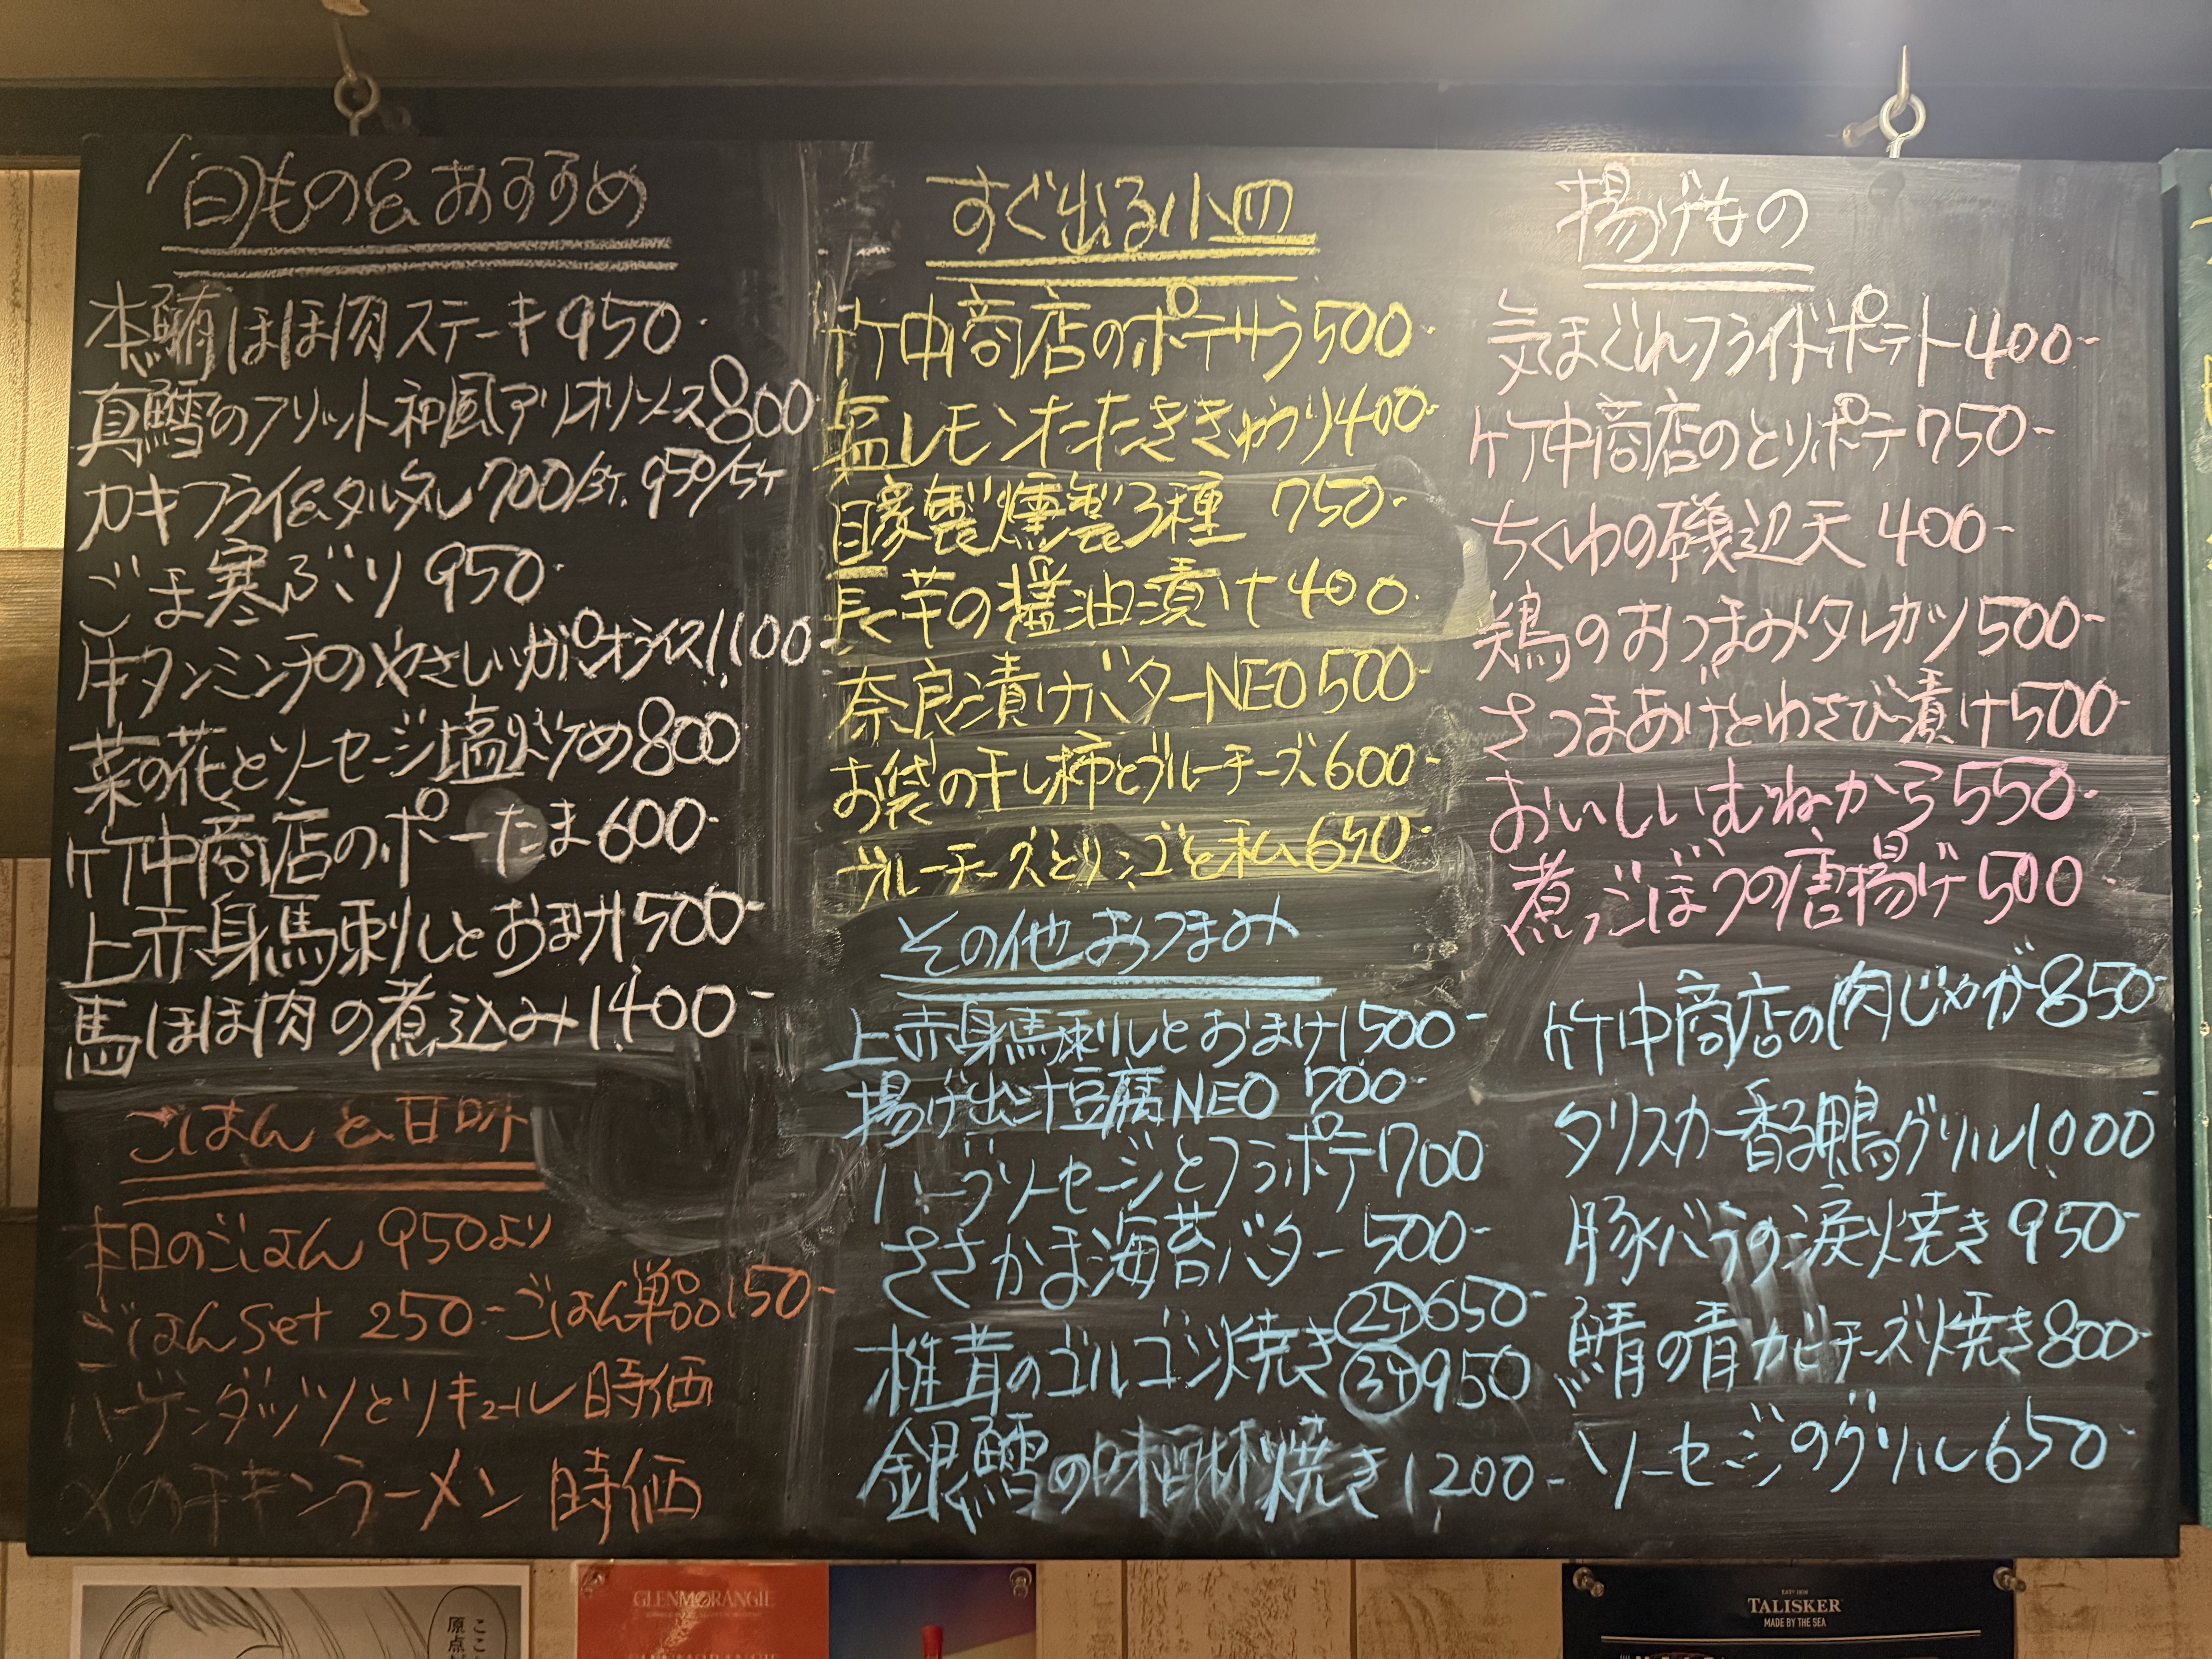 旬もの&おすすめ
本鮪ほほ肉ステーキ950-
真鱈のフリット和風アリオリソース800-
カキフライ&タルタル700/3ケ. 950/5ケ
ごま寒ぶり950-
牛タンミンチのやさしいガパオライス1,100
菜の花とソーセージ塩炒め800
竹中商店のポーたま600-
上赤身馬刺しとおまけ1500-
馬ほほ肉の煮込み1,400-
ごはんと甘味
本日のごはん 950より
ごはんset 250-ごはん単品150-
ハーゲンダッツとリキュール時価
〆のチキンラーメン 時価
すぐ出る小皿
竹中商店のポテサラ500-
塩レモンたたききゅうり400-
自家製燻製3種 750-
長芋の醤油漬け400-
奈良漬けバターNEO500-
お袋の干し柿とブルーチーズ600-
ブルーチーズとリンゴと私650-
その他おつまみ
上赤身馬刺しとおまけ1500-
揚げ出汁豆腐NEO 700-
ハーブソーセージとフラポテ700
ささかま海苔バター 500-
椎茸のゴルゴン焼き 2ケ650-
3ケ950
銀鱈の味醂焼き1,200-
揚げもの
気まぐれフライドポテト400-
竹中商店のとりポテ750-
ちくわの磯辺天400-
鶏のおつまみタレカツ500-
さつまあげとわさび漬け500-
おいしいむねから550-
煮ごぼうの唐揚げ500-
竹中商店の肉じゃが850-
タリスカー香る鴨グリル1,000
豚バラの涙焼き950-
鯖の青カビチーズ焼き800-
ソーセージのグリル650-
ここ
原点
GLENMORANGIE
TALISKER
MADE BY THE SEA